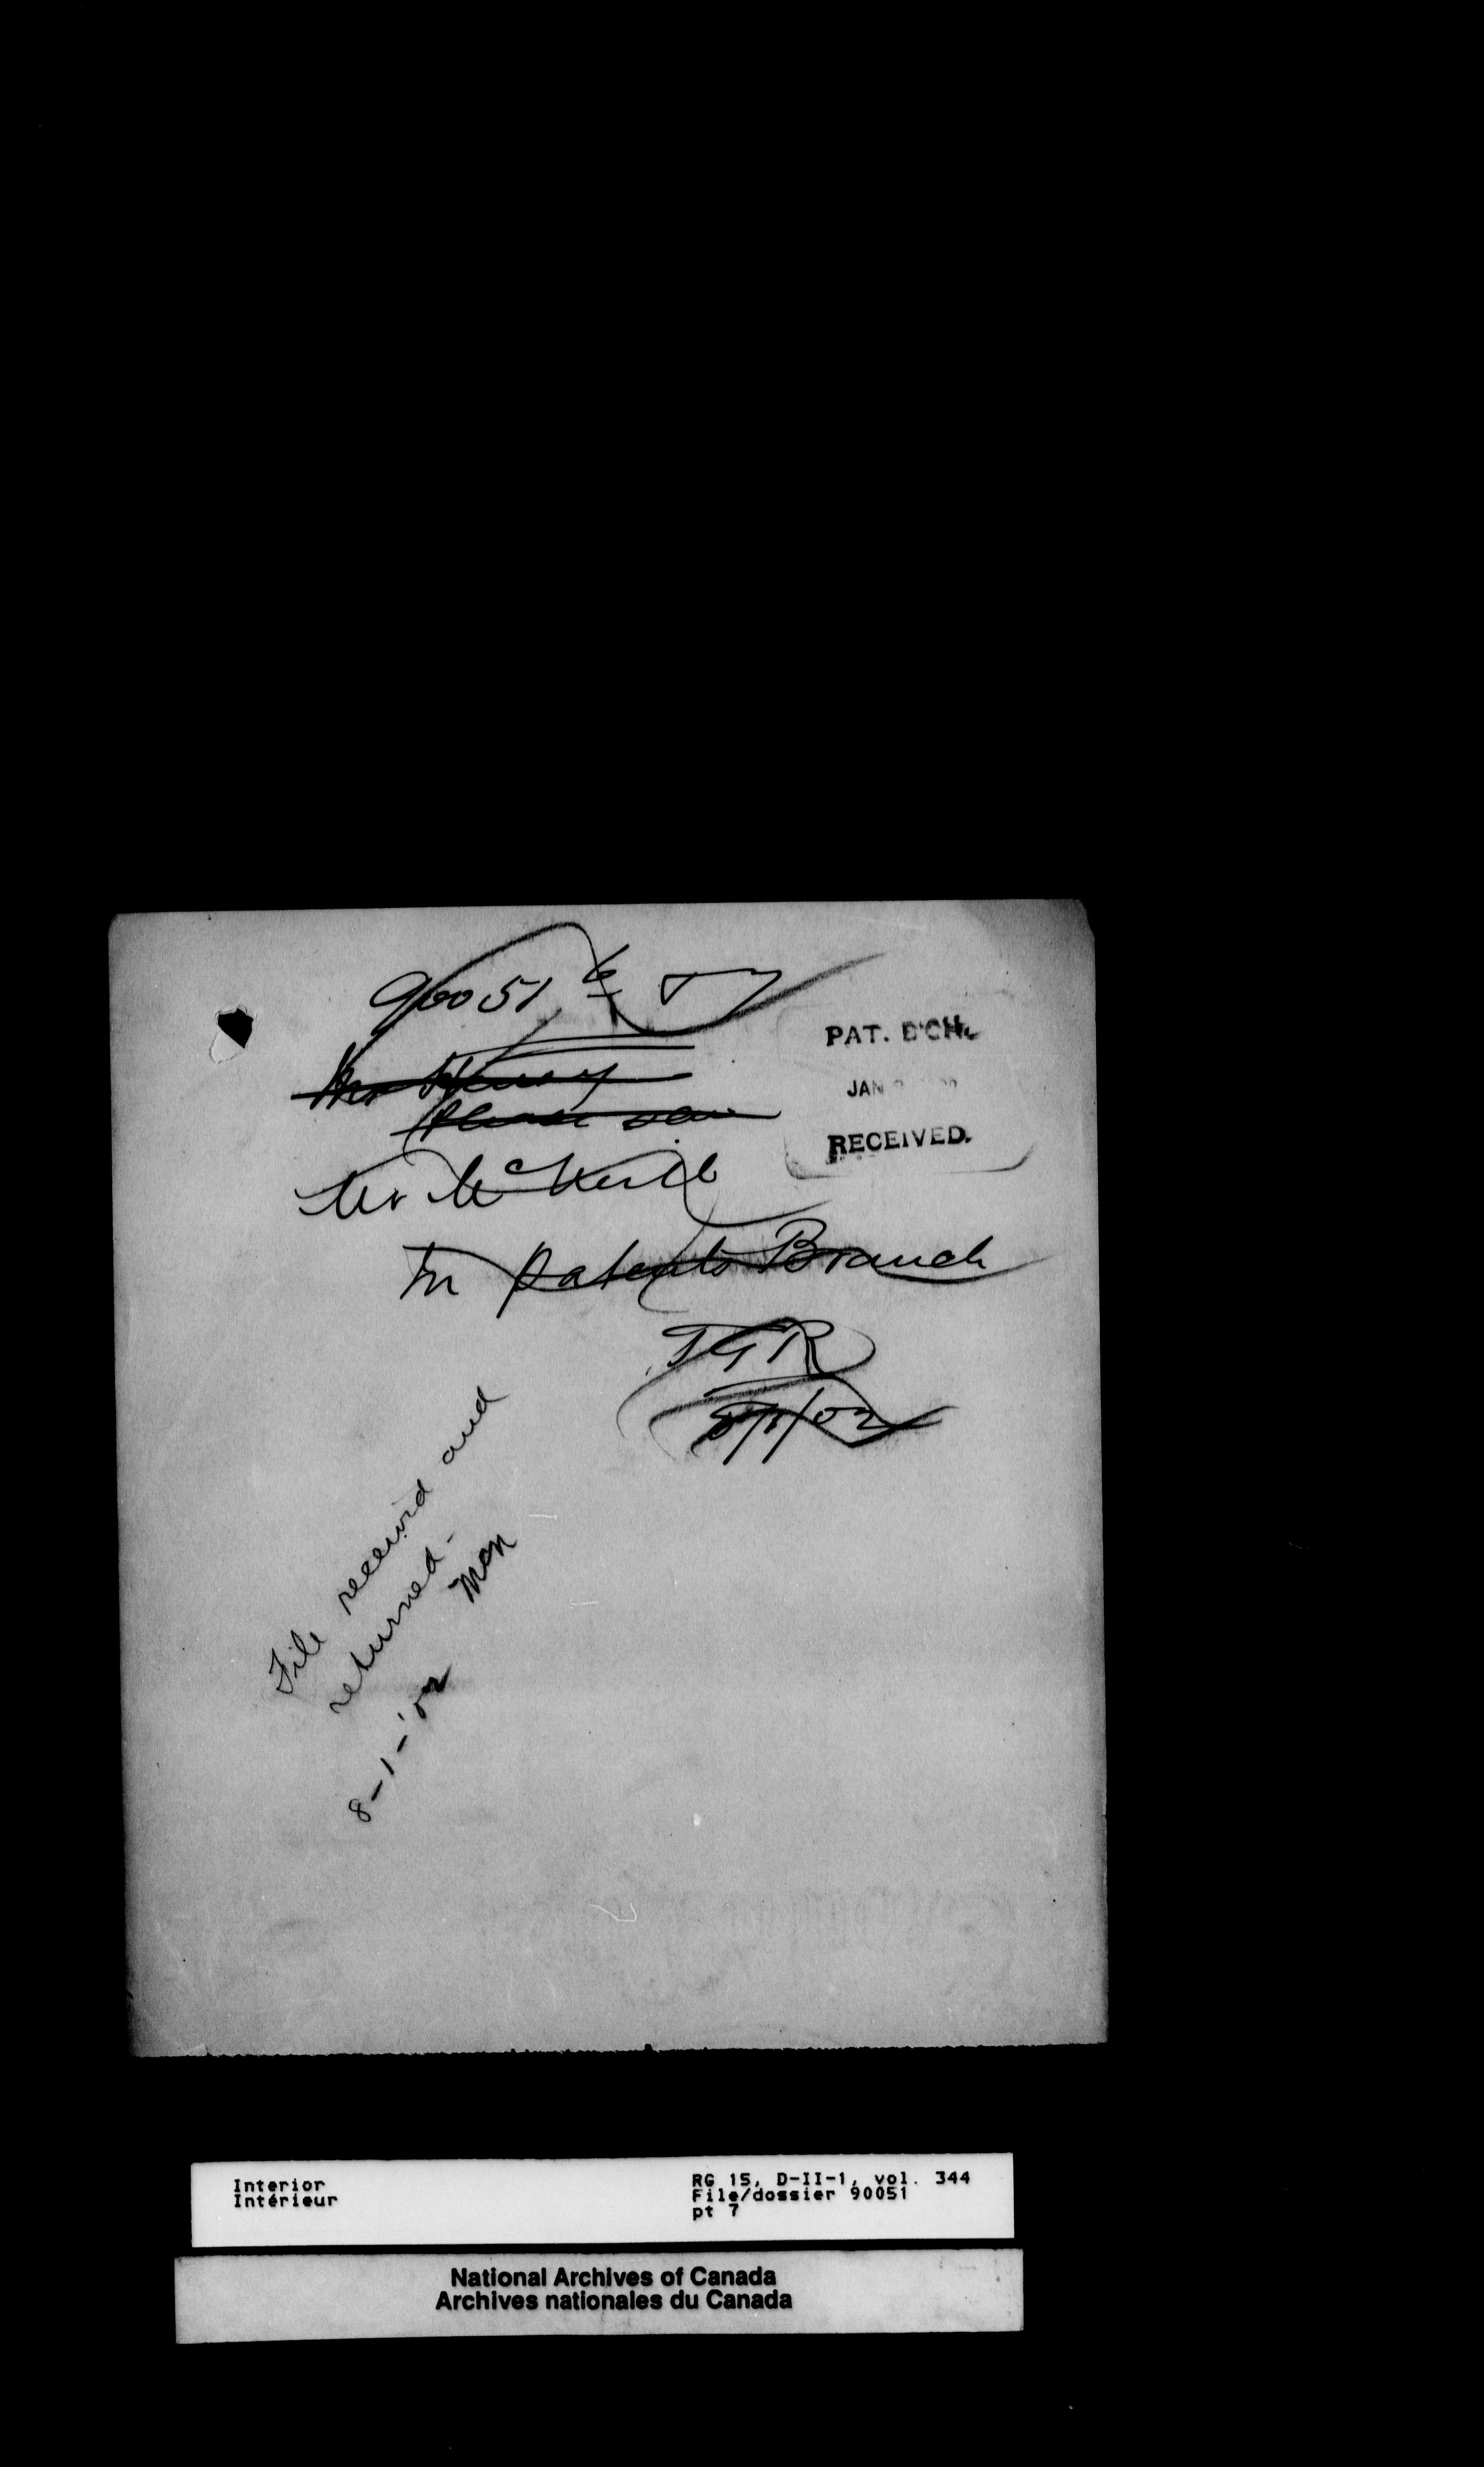 90051
PAT. B'CH.
JAN
RECEIVED.
Mr
Please
Mr
Patents Branch
TGR
8/1/02
File received and
returned -
8-1-'02
Interior
Intérieur
RG 15, D-II-1, vol. 344
File/dossier 90051
pt 7
National Archives of Canada
Archives nationales du Canada